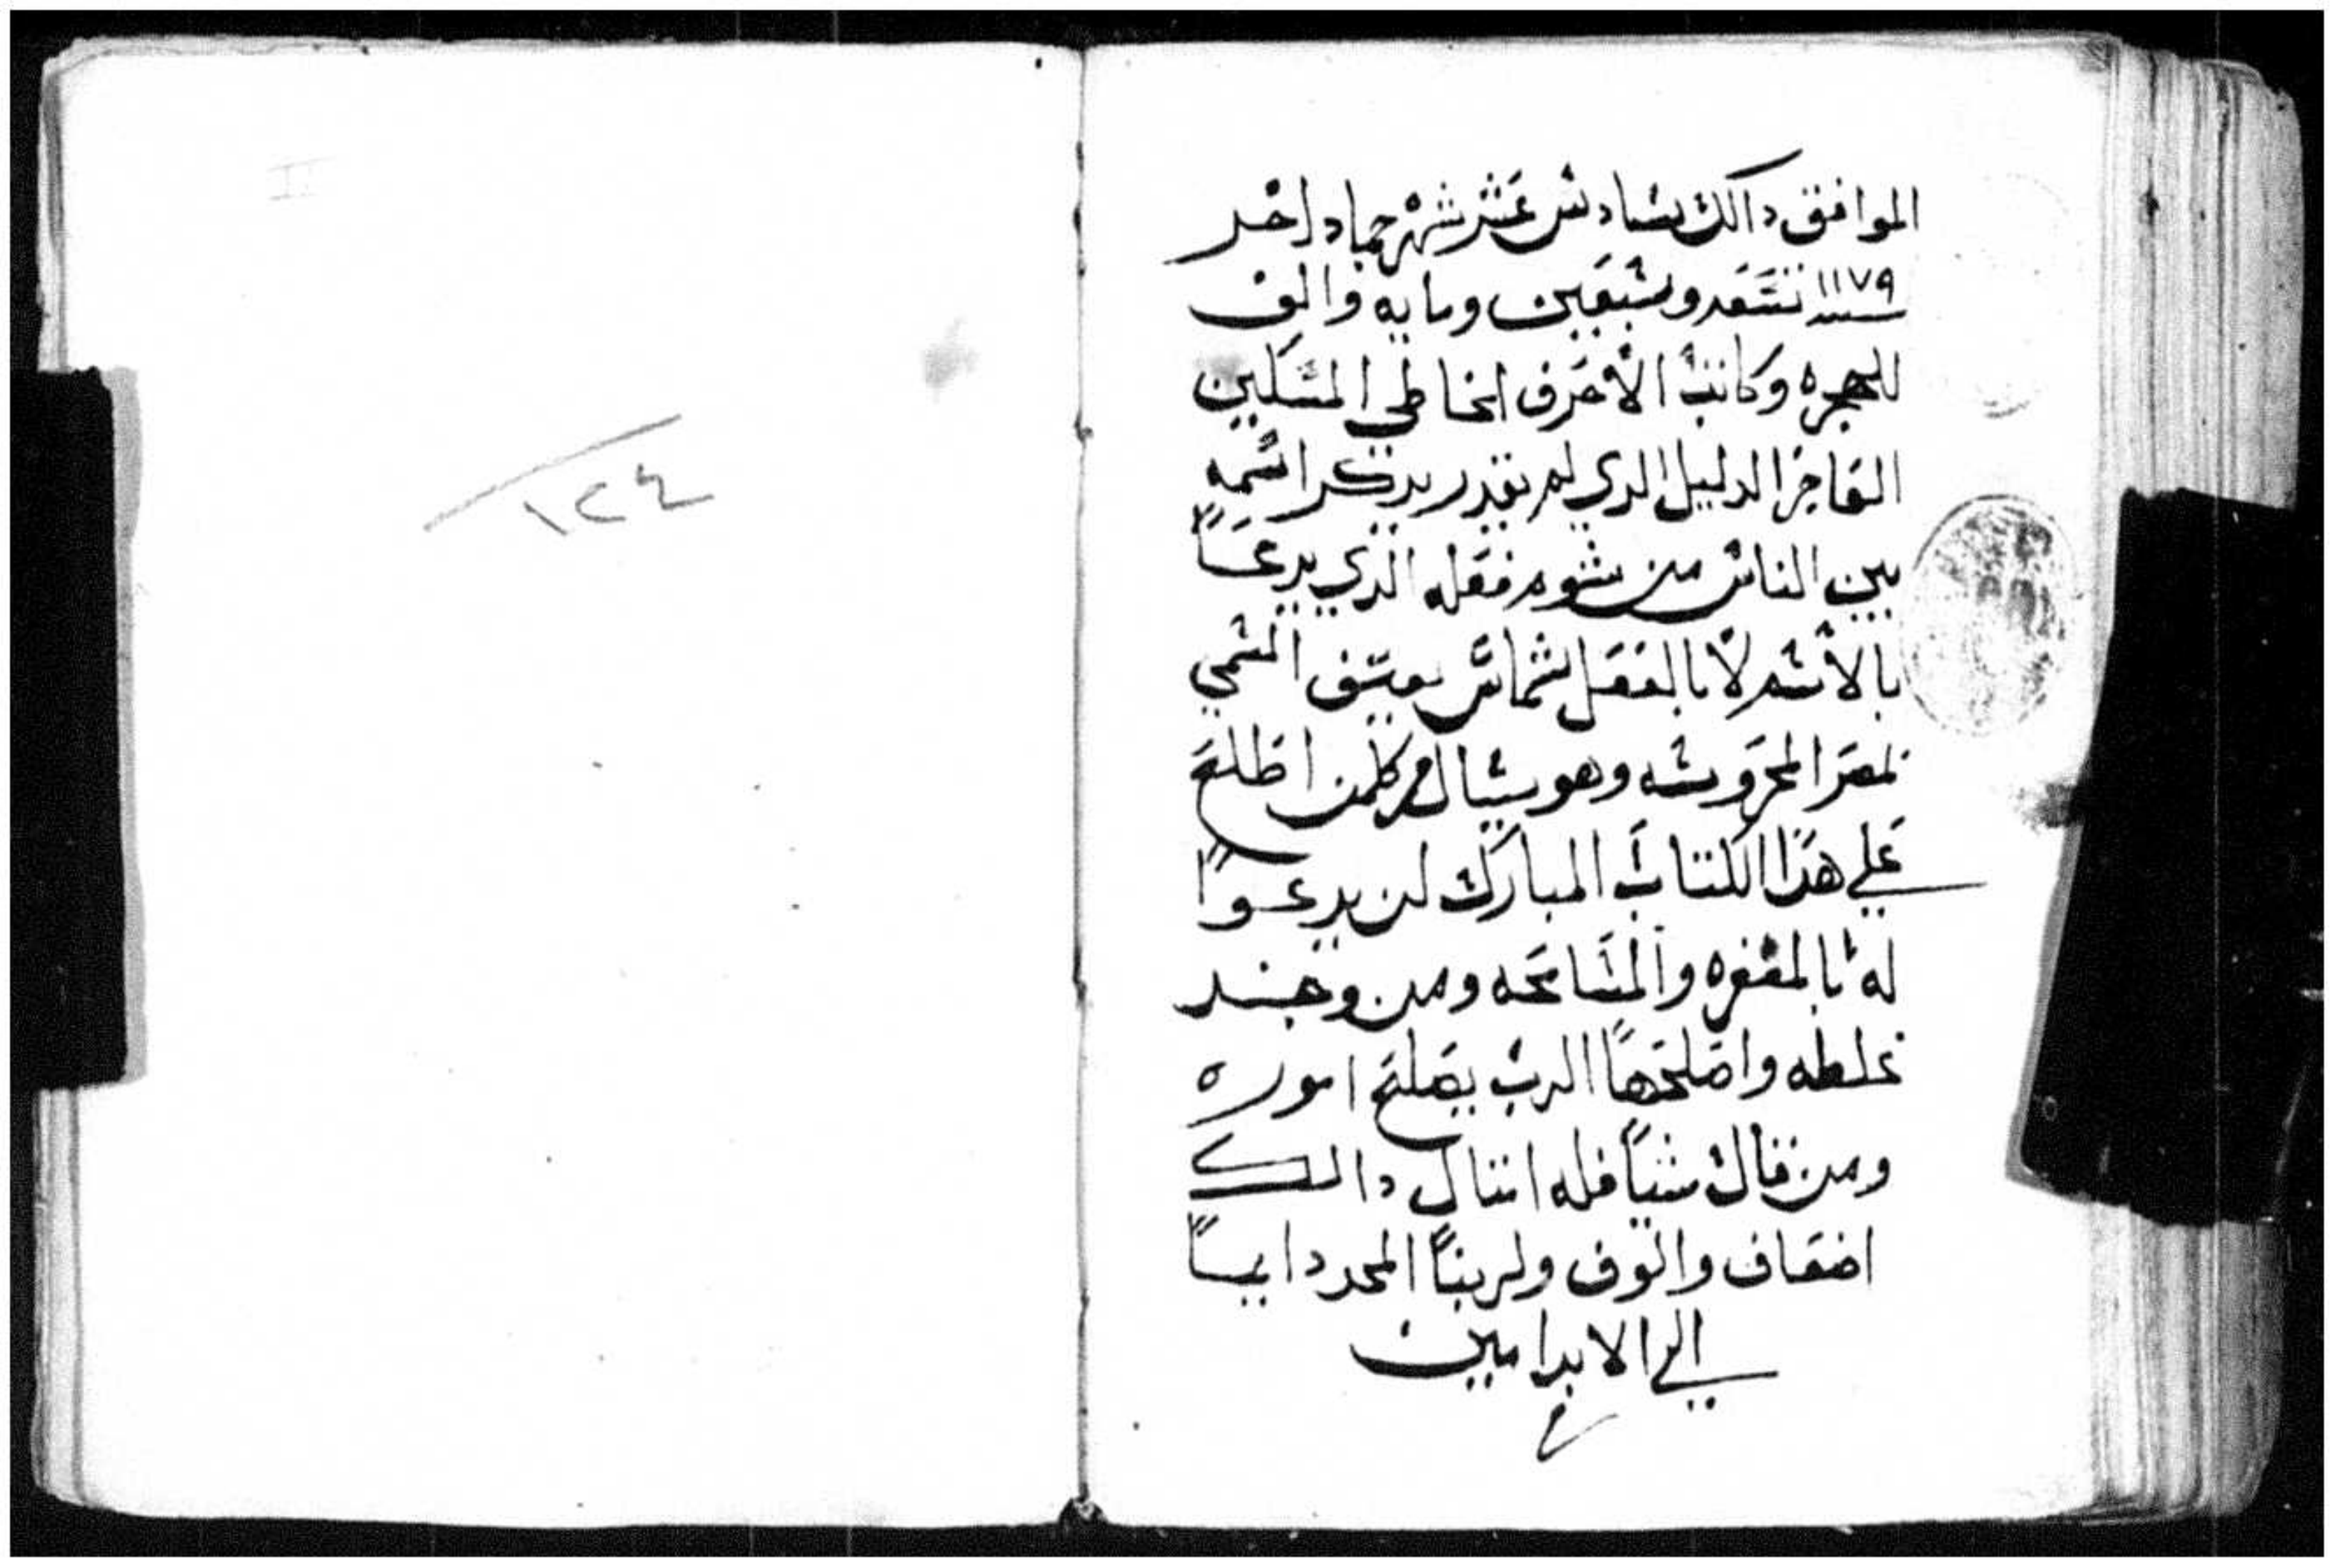 الموافق دالك سادس عشر شهر جماد اخر
سنة ١١٧٩ تسعه وسبعين ومايه والف
للهجره وكاتب الأحرف الخاطي المسكين
العاجز الدليل الدي لم يقدر يدكر اسمه
بين الناس من شوم فعله الدي يدعاً
بالأسم لا بالفعل شماس يوسف
بمصر المحروسه وهو يسال من كلمن اطلع
علي هدا الكتاب المبارك ان يدعوا
له بالمغفره والمسامحه ومن وجد
غلطه واصلحها الرب يصلح اموره
ومن قال شياً فله امتال دالك
اضعاف والوف ولربنا المجد دايماً
الي الابد امين
١٢٤